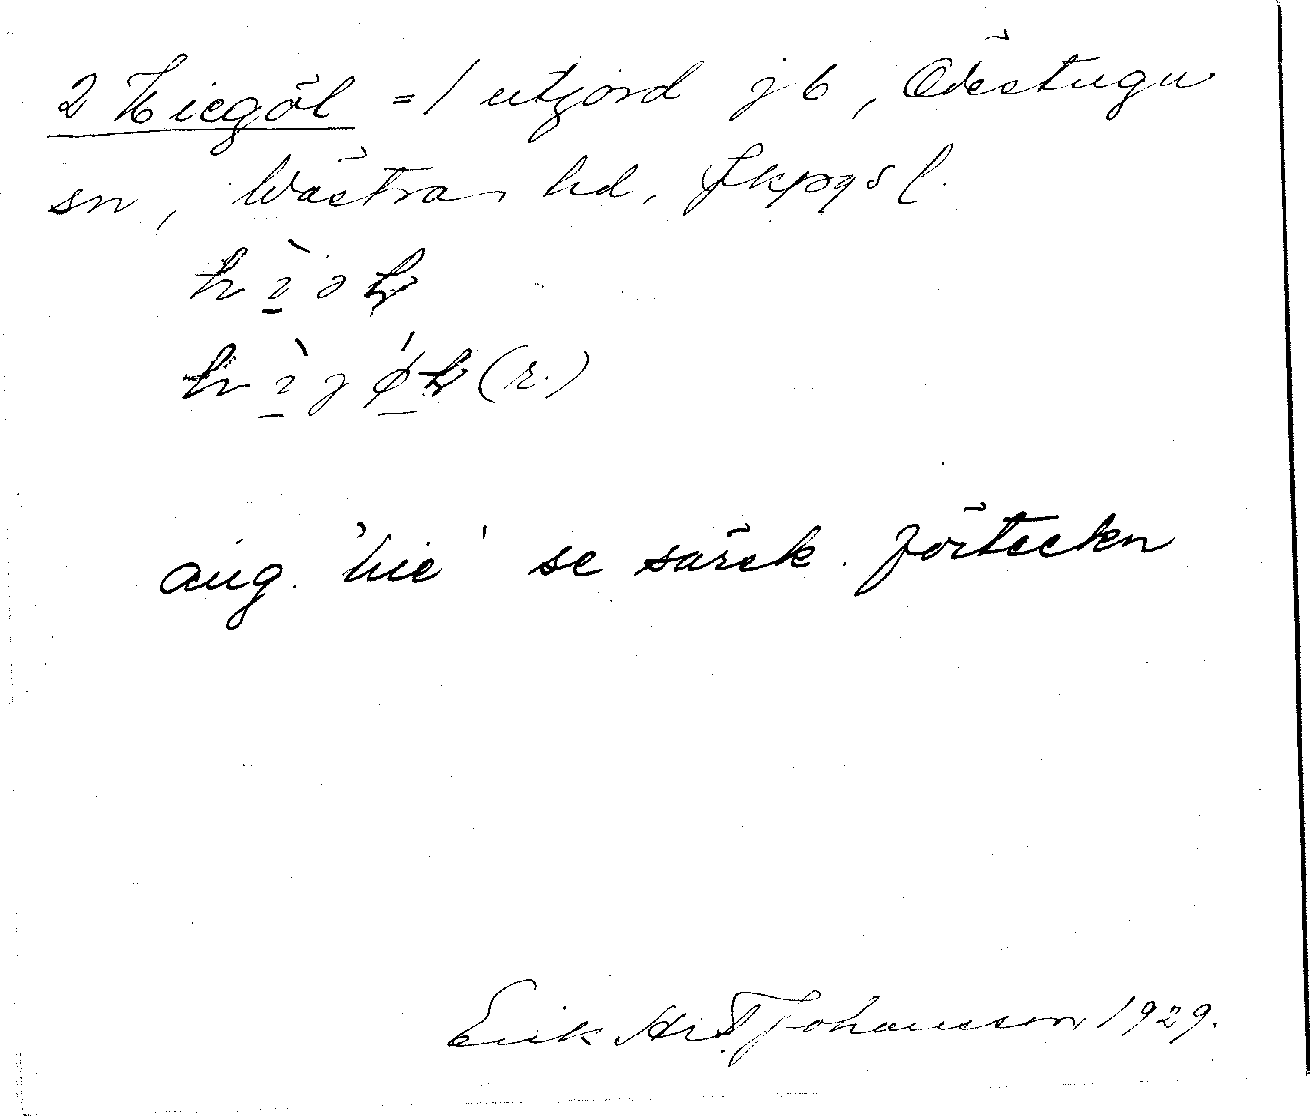 2 Hiegöl = 1 utjord jb, Ödestugu
sn, Västra hd, Jkpgs l.
ang. 'hie' se särsk. förteckn
Erik Johansson 1929.